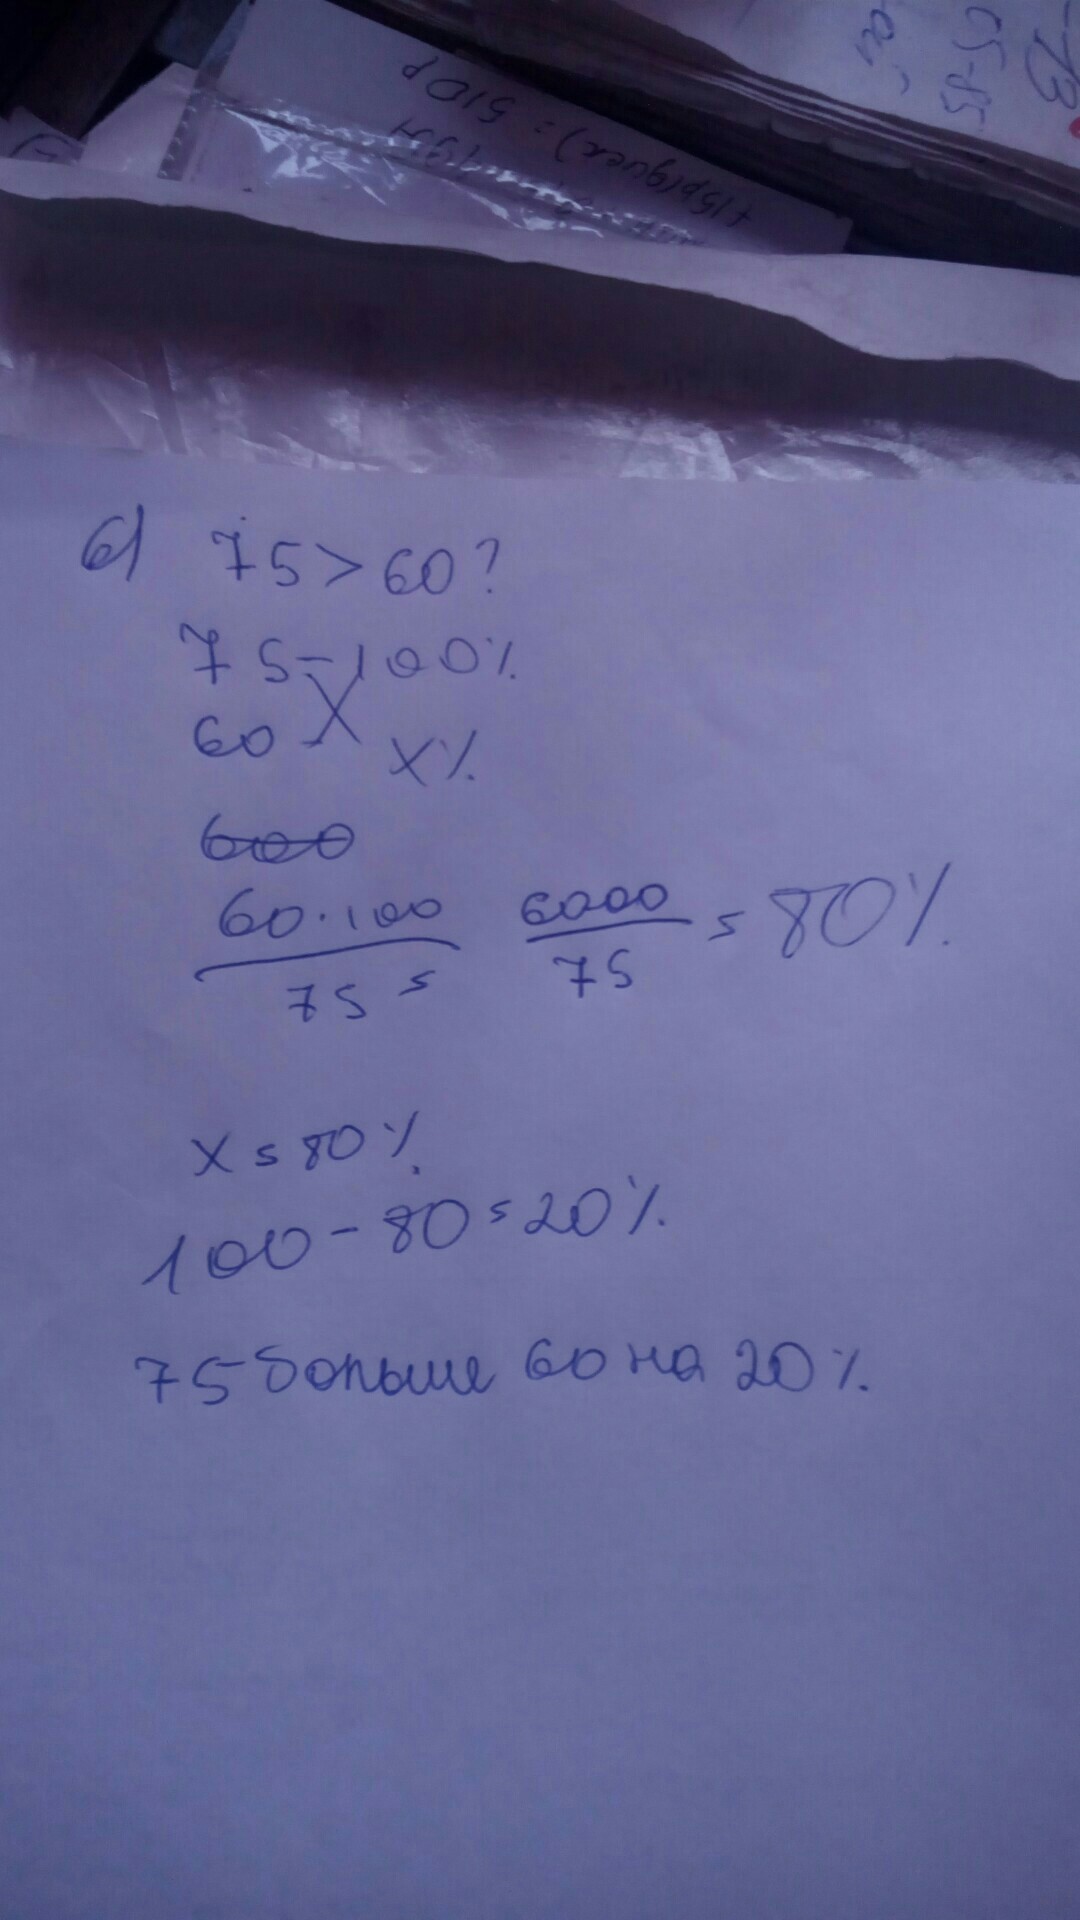 = 510р
+15р(диск)
б) 75 > 60?
75 - 100%
60 X%
600
60·100 / 75 = 6000 / 75 = 80%
X = 80%
100 - 80 = 20%
75 больше 60 на 20%.